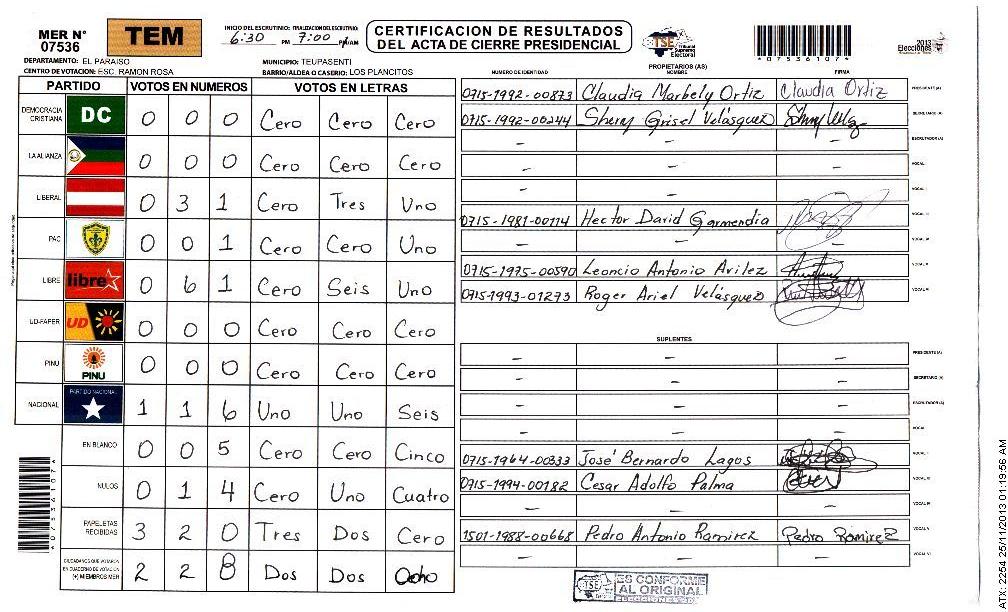 MER N°
07536
TEM
INICIO DEL ESCRUTINIO: FINALIZACION DEL ESCRUTINIO:
6:30 PM 7:00 PM/AM
CERTIFICACION DE RESULTADOS
DEL ACTA DE CIERRE PRESIDENCIAL
TSE Tribunal Supremo Electoral
*07536107*
2013
Elecciones
DEPARTAMENTO: EL PARAISO
MUNICIPIO: TEUPASENTI
CENTRO DE VOTACION: ESC. RAMON ROSA
BARRIO/ALDEA O CASERIO: LOS PLANCITOS
PROPIETARIOS (AS)
NUMERO DE IDENTIDAD NOMBRE FIRMA
PARTIDO VOTOS EN NUMEROS VOTOS EN LETRAS
DEMOCRACIA CRISTIANA DC 0 0 0 Cero Cero Cero
LA ALIANZA 0 0 0 Cero Cero Cero
LIBERAL 0 3 1 Cero Tres Uno
PAC 0 0 1 Cero Cero Uno
LIBRE libre 0 6 1 Cero Seis Uno
UD-FAPER UD 0 0 0 Cero Cero Cero
PINU PINU 0 0 0 Cero Cero Cero
NACIONAL PARTIDO NACIONAL 1 1 6 Uno Uno Seis
EN BLANCO 0 0 5 Cero Cero Cinco
NULOS 0 1 4 Cero Uno Cuatro
PAPELETAS RECIBIDAS 3 2 0 Tres Dos Cero
CIUDADANOS QUE VOTARON EN CUADERNO DE VOTACION (+) MIEMBROS MER 2 2 8 Dos Dos Ocho
*07536107*
0715-1992-00873 Claudia Marbely Ortiz Claudia Ortiz PRESIDENTE(A)
0715-1992-00244 Sherry Grisel Velásquez SECRETARIO (A)
— — — ESCRUTADOR (A)
— — — VOCAL
— — — VOCAL
0715-1981-00114 Hector David Garmendia VOCAL
— — — VOCAL
0715-1975-00590 Leoncio Antonio Avilez VOCAL
0715-1993-01273 Roger Ariel Velásquez VOCAL
SUPLENTES
— — — PRESIDENTE (A)
— — — SECRETARIO (A)
— — — ESCRUTADOR (A)
— — — VOCAL
0715-1964-00333 José Bernardo Lagos VOCAL
0715-1994-00182 Cesar Adolfo Palma VOCAL
— — — VOCAL
1501-1988-00668 Pedro Antonio Ramirez Pedro Ramirez VOCAL
— — — VOCAL
TSE ES CONFORME
AL ORIGINAL
ATX: 2254 25/11/2013 01:19:56 AM